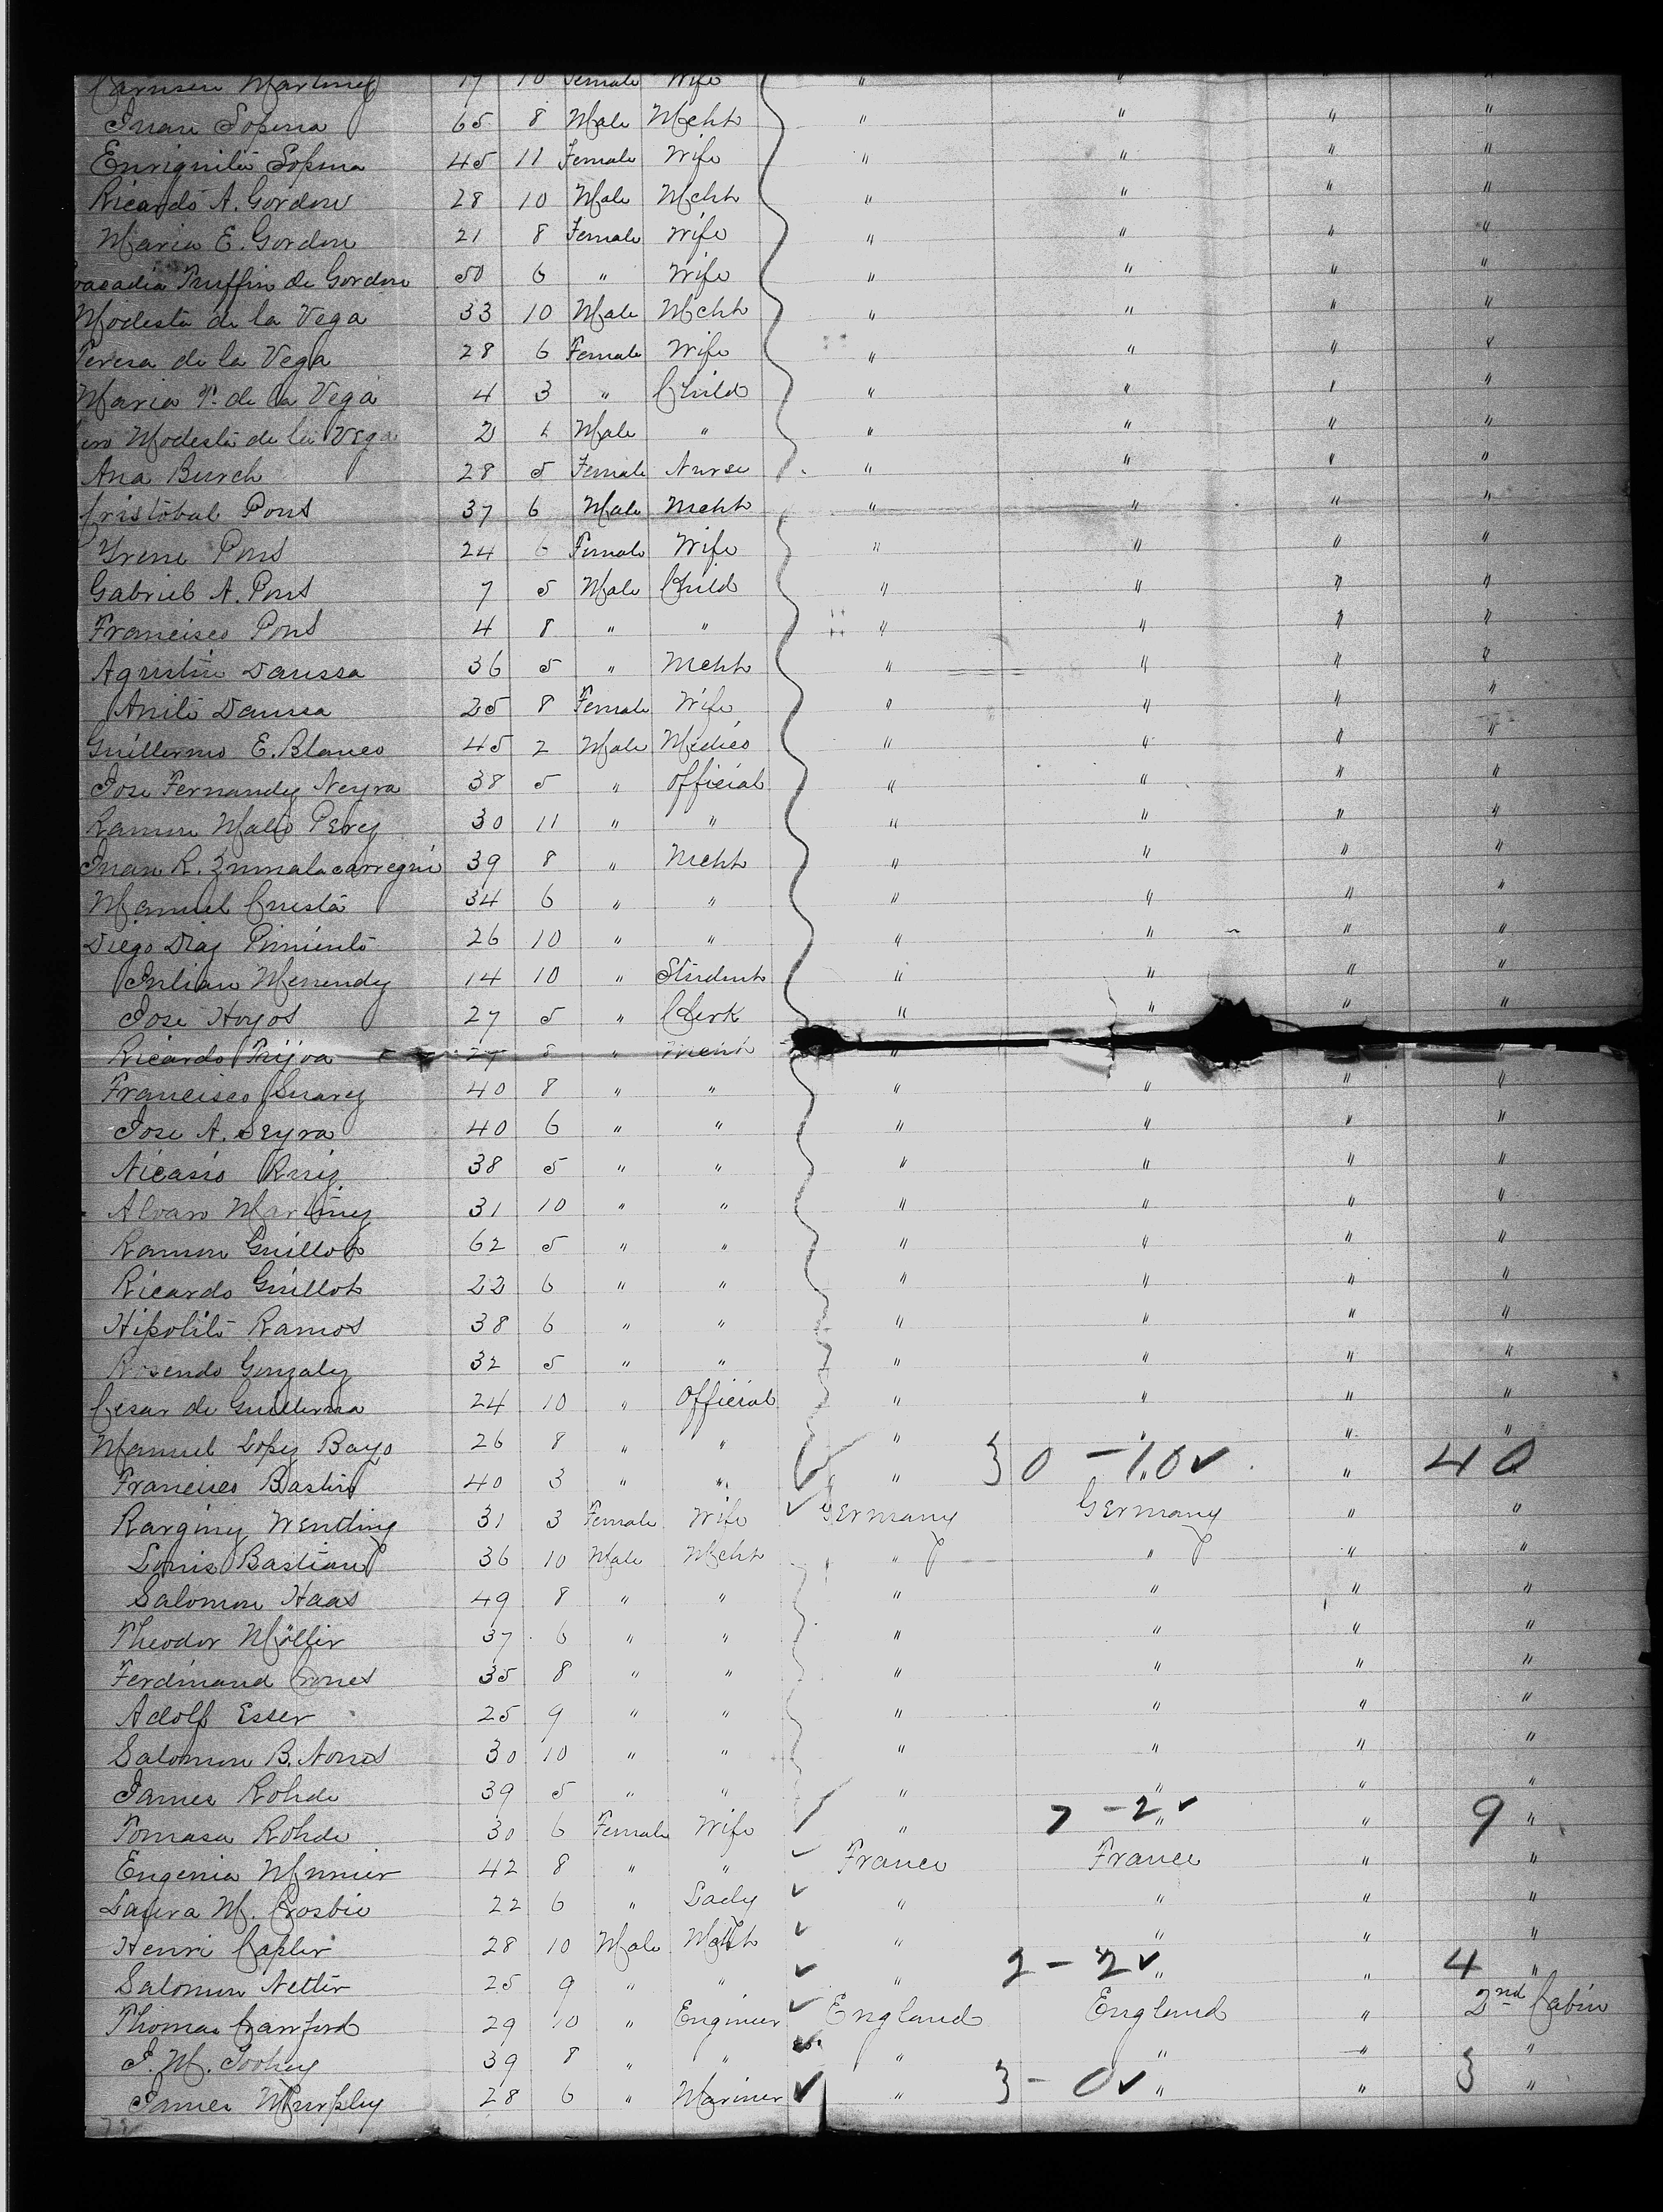 Carmen Martinez 19 10 Female Wife " " " "
Juan Sopena 65 8 Male Mcht " " " "
Enriquita Sopena 45 11 Female Wife " " " "
Ricardo A. Gordon 28 10 Male Mcht " " " "
Maria E. Gordon 21 8 Female Wife " " " "
de Gordon 50 6 " Wife " " " "
Modesto de la Vega 33 10 Male Mcht " " " "
Teresa de la Vega 28 6 Female Wife " " " "
Maria T. de la Vega 4 3 " Child " " " "
Modesto de la Vega 2 6 Male " " " " "
Ana Burch 28 5 Female Nurse " " " "
Cristobal Pons 37 6 Male Mcht " " " "
Yrene Pons 24 6 Female Wife " " " "
Gabriel A. Pons 7 5 Male Child " " " "
Francisco Pons 4 8 " " " " " "
Agustin Daussa 36 5 " Mcht " " " "
Anita Daussa 25 8 Female Wife " " " "
Guillermo E. Blanco 45 2 Male Medico " " " "
Jose Fernandez Neyra 38 5 " Official " " " "
Ramon Perez 30 11 " " " " " "
Juan R. Zumalacarregui 39 8 " Mcht " " " "
Manuel Cuesta 34 6 " " " " " "
Diego Diaz Pimiento 26 10 " " " " " "
Julian Menendez 14 10 " Student " " " "
Jose Hoyos 27 5 " Clerk " " " "
Ricardo 27 5 " Mcht "
Francisco Suarez 40 8 " " " " " "
Jose A. Seyra 40 6 " " " " " "
Nicasio Ruiz 38 5 " " " " " "
Alvaro Martinez 31 10 " " " " " "
Ramon Guillot 62 5 " " " " " "
Ricardo Guillot 22 6 " " " " " "
Hipolito Ramos 38 6 " " " " " "
Rosendo Gonzalez 32 5 " " " " " "
Cesar de Guillerma 24 10 " Official " " " "
Manuel Lopez Bayo 26 8 " " " " " "
Francisco Bastin 40 3 " " " 30 - 10 ✓ " 40
Wentling 31 3 Female Wife ✓ Germany Germany " "
Louis Bastian 36 10 Male Mcht " " " "
Salomon Haas 49 8 " " " " " "
Theodor Möller 37 6 " " " " " "
Ferdinand Crones 35 8 " " " " " "
Adolf Esser 25 9 " " " " " "
Salomon B. 30 10 " " " " " "
James Rohde 39 5 " " " " " "
Tomasa Rohde 30 6 Female Wife " 7 - 2 ✓ " " 9 "
Eugenia Munier 42 8 " " ✓ France France " "
Laura M. Crosbie 22 6 " Lady ✓ " " " "
Henri Capler 28 10 Male Mcht ✓ " " " "
Salomon Netter 25 9 " " ✓ " 2 - 2 ✓ " " 4 "
Thomas Crawford 29 10 " Engineer ✓ England England " 2nd Cabin
J. M. Toohey 39 8 " " ✓ " " " "
James Murphy 28 6 " Mariner ✓ " 3 - 0 ✓ " " 3 "